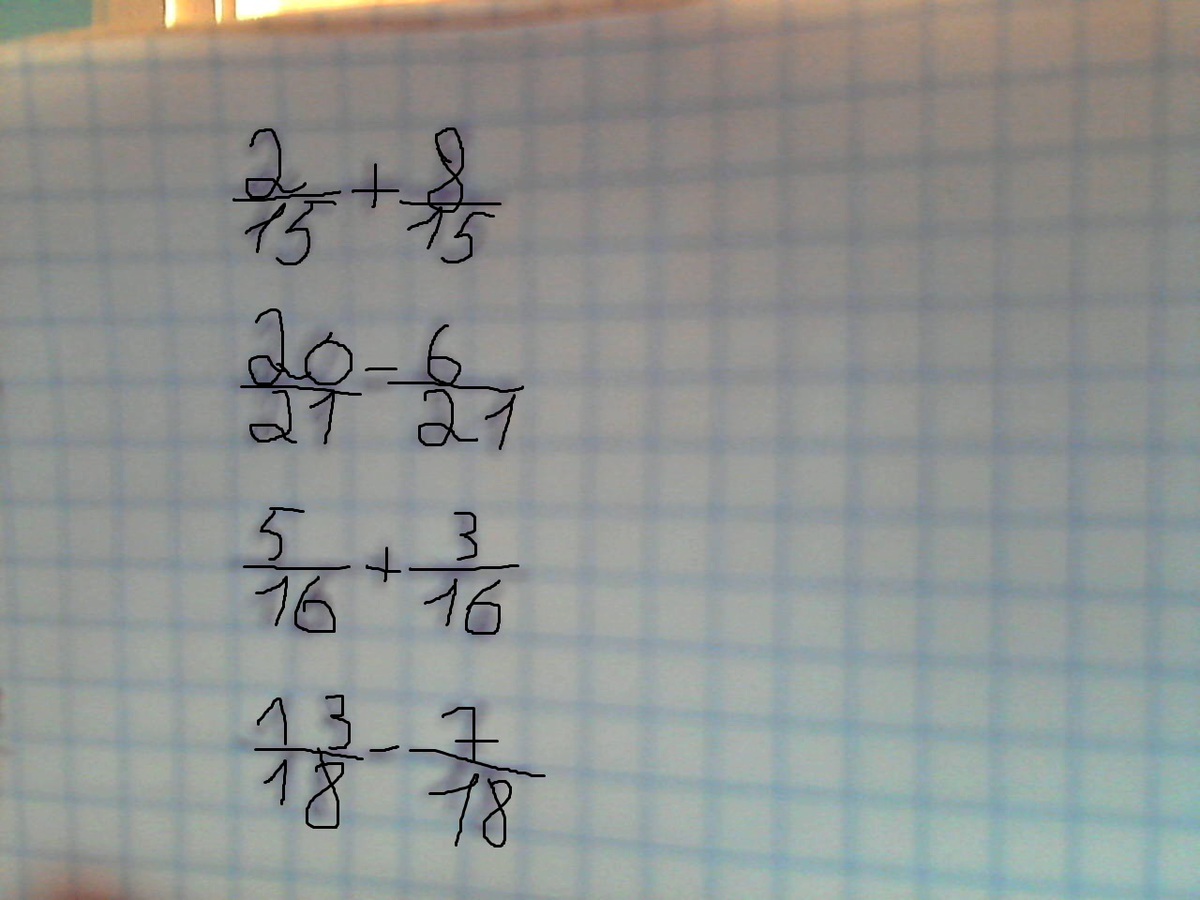 2/15 + 8/15
20/21 - 6/21
5/16 + 3/16
13/18 - 7/18